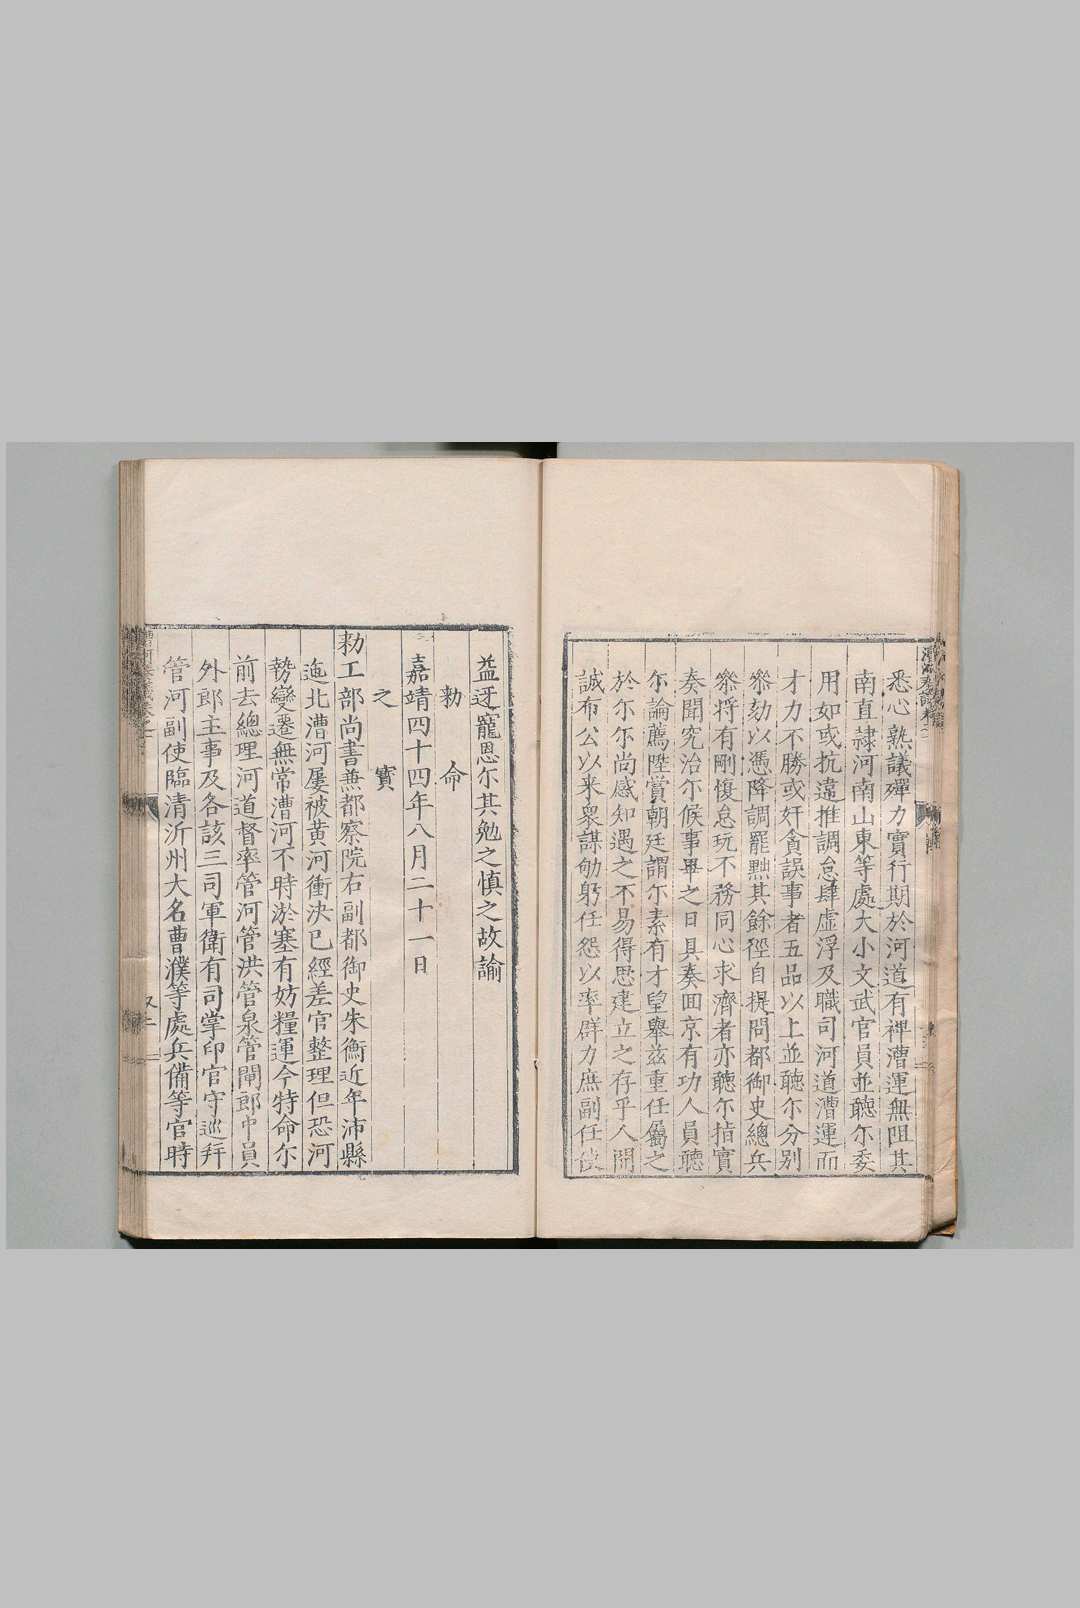 悉心熟議殫力實行期於河道有裨漕運無阻其
南直隷河南山東等處大小文武官員並聽尓委
用如或抗違推調怠肆虛浮及職司河道漕運而
才力不勝或奸貪誤事者五品以上並聽尓分别
叅劾以憑降調罷黜其餘徑自提問都御史總兵
叅將有剛愎怠玩不務同心求濟者亦聽尓指實
奏聞究治尓候事畢之日具奏囬京有功人員聽
尓論薦陞賞朝廷謂尓素有才望舉兹重任屬之
於尓尓尚感知遇之不易得思建立之存乎人開
誠布公以来衆謀劬躬任怨以率群力庶副任使
益迓寵恩尓其勉之慎之故諭
勑命
嘉靖四十四年八月二十一日
之寳
勑工部尚書兼都察院右副都御史朱衡近年沛縣
迤北漕河屢被黄河衝決已經差官整理但恐河
勢變遷無常漕河不時淤塞有妨糧運今特命尓
前去總理河道督率管河管洪管泉管閘郎中員
外郎主事及各該三司軍衛有司掌印官守巡并
管河副使臨清沂州大名曹濮等處兵備等官時